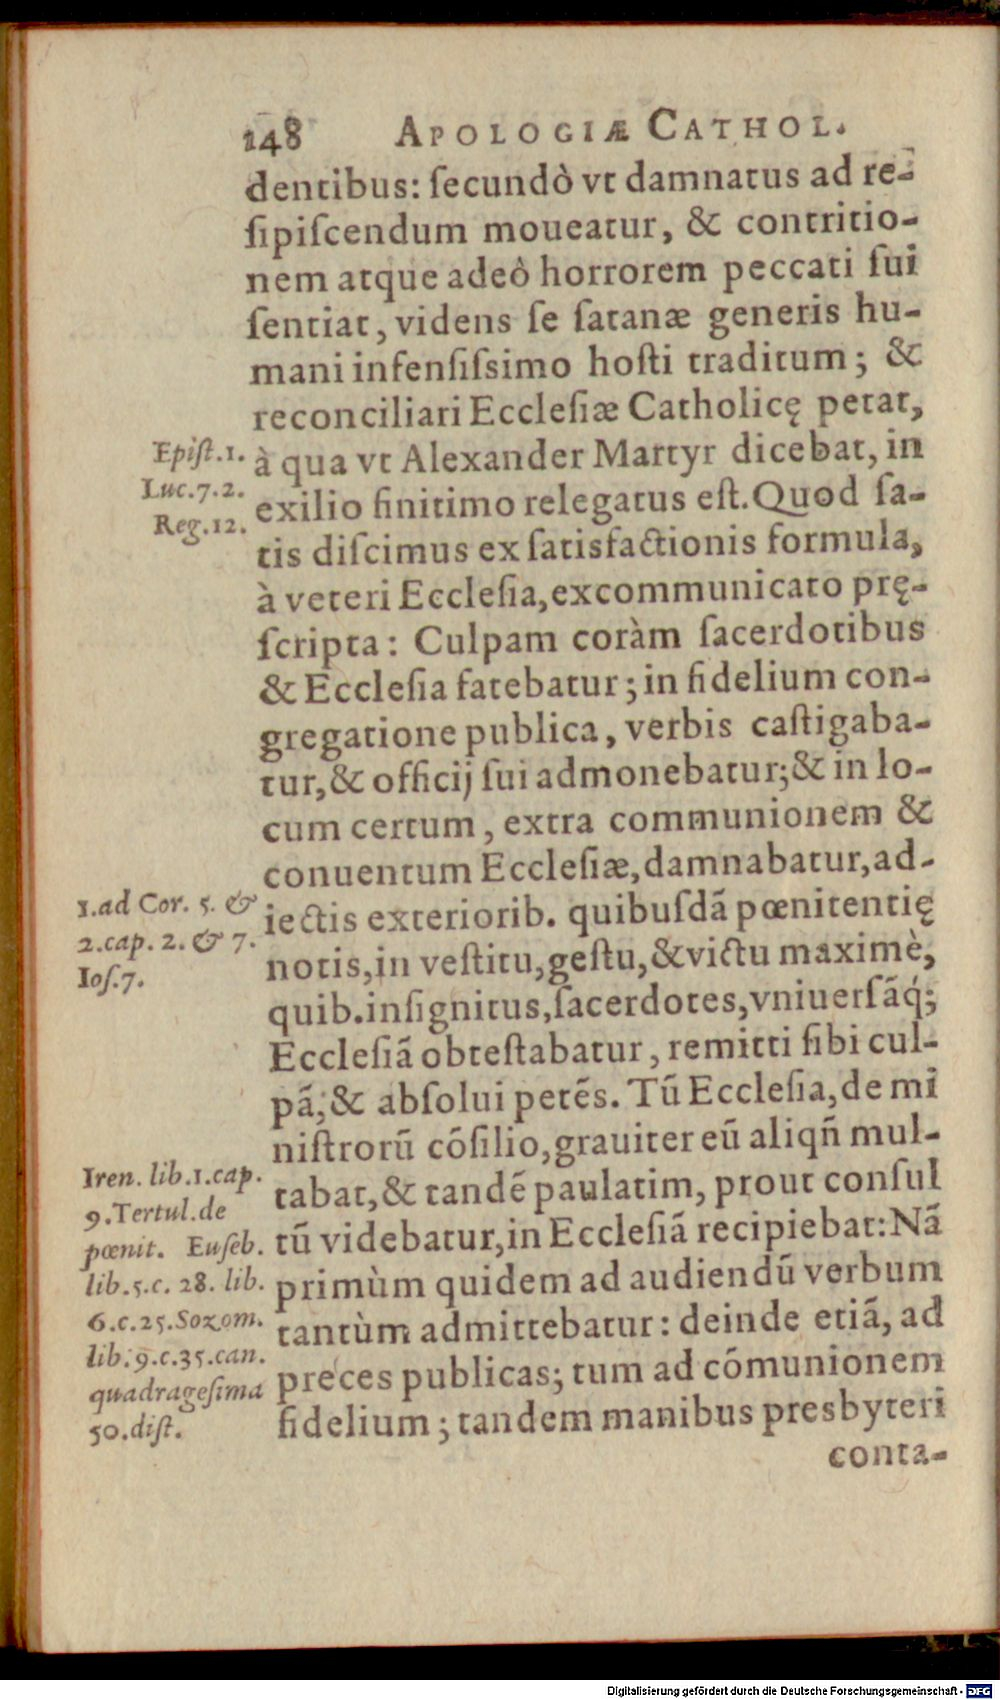 148 APOLOGIÆ CATHOL.
dentibus: ſecundò vt damnatus ad re-
ſipiſcendum moueatur, & contritio-
nem atque adeò horrorem peccati ſui
ſentiat, videns ſe ſatanæ generis hu-
mani infenſiſsimo hoſti traditum; &
reconciliari Eccleſiæ Catholicę petat,
à qua vt Alexander Martyr dicebat, in
exilio finitimo relegatus eſt. Quod ſa-
tis diſcimus ex ſatisfactionis formula,
à veteri Eccleſia, excommunicato prę-
ſcripta: Culpam coràm ſacerdotibus
& Eccleſia fatebatur; in fidelium con-
gregatione publica, verbis caſtigaba-
tur, & officij ſui admonebatur; & in lo-
cum certum, extra communionem &
conuentum Eccleſiæ, damnabatur, ad-
iectis exteriorib. quibuſdā pœnitentię
notis, in veſtitu, geſtu, & victu maximè,
quib. inſignitus, ſacerdotes, vniuerſāq́;
Eccleſiā obteſtabatur, remitti ſibi cul-
pā, & abſolui petēs. Tū Eccleſia, de mi
niſtrorū cōſilio, grauiter eū aliqñ mul-
tabat, & tandē paulatim, prout conſul
tū videbatur, in Eccleſiā recipiebat: Nā
primùm quidem ad audiendū verbum
tantùm admittebatur: deinde etiā, ad
preces publicas; tum ad cōmunionem
fidelium; tandem manibus presbyteri
conta-
Epiſt. 1.
Luc. 7. 2.
Reg. 12.
1. ad Cor. 5. &
2. cap. 2. & 7.
Ioſ. 7.
Iren. lib. 1. cap.
9. Tertul. de
pœnit. Euſeb.
lib. 5. c. 28. lib.
6. c. 25. Sozom.
lib. 9. c. 35. can.
quadrageſima
50. diſt.
Digitalisierung gefördert durch die Deutsche Forschungsgemeinschaft - DFG